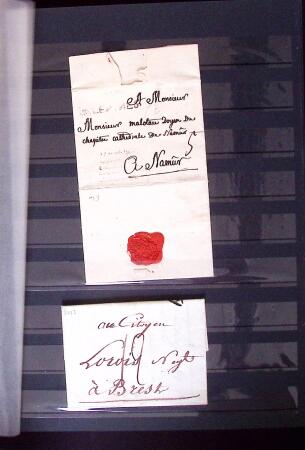 A Monsieur
Monsieur malotau Doyen Du
chapitre cathédrale De Namûr
A Namûr
5
au Citoyen
Louis Neyt
à Brest